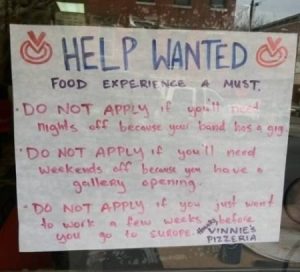 HELP WANTED
FOOD EXPERIENCE A MUST.
· DO NOT APPLY if you'll need
nights off because your band has a gig
· DO NOT APPLY if you'll need
weekends off because you have a
gallery opening.
· DO NOT APPLY if you just want
to work a few weeks before
you go to EUROPE.
VINNIE'S
PIZZERIA